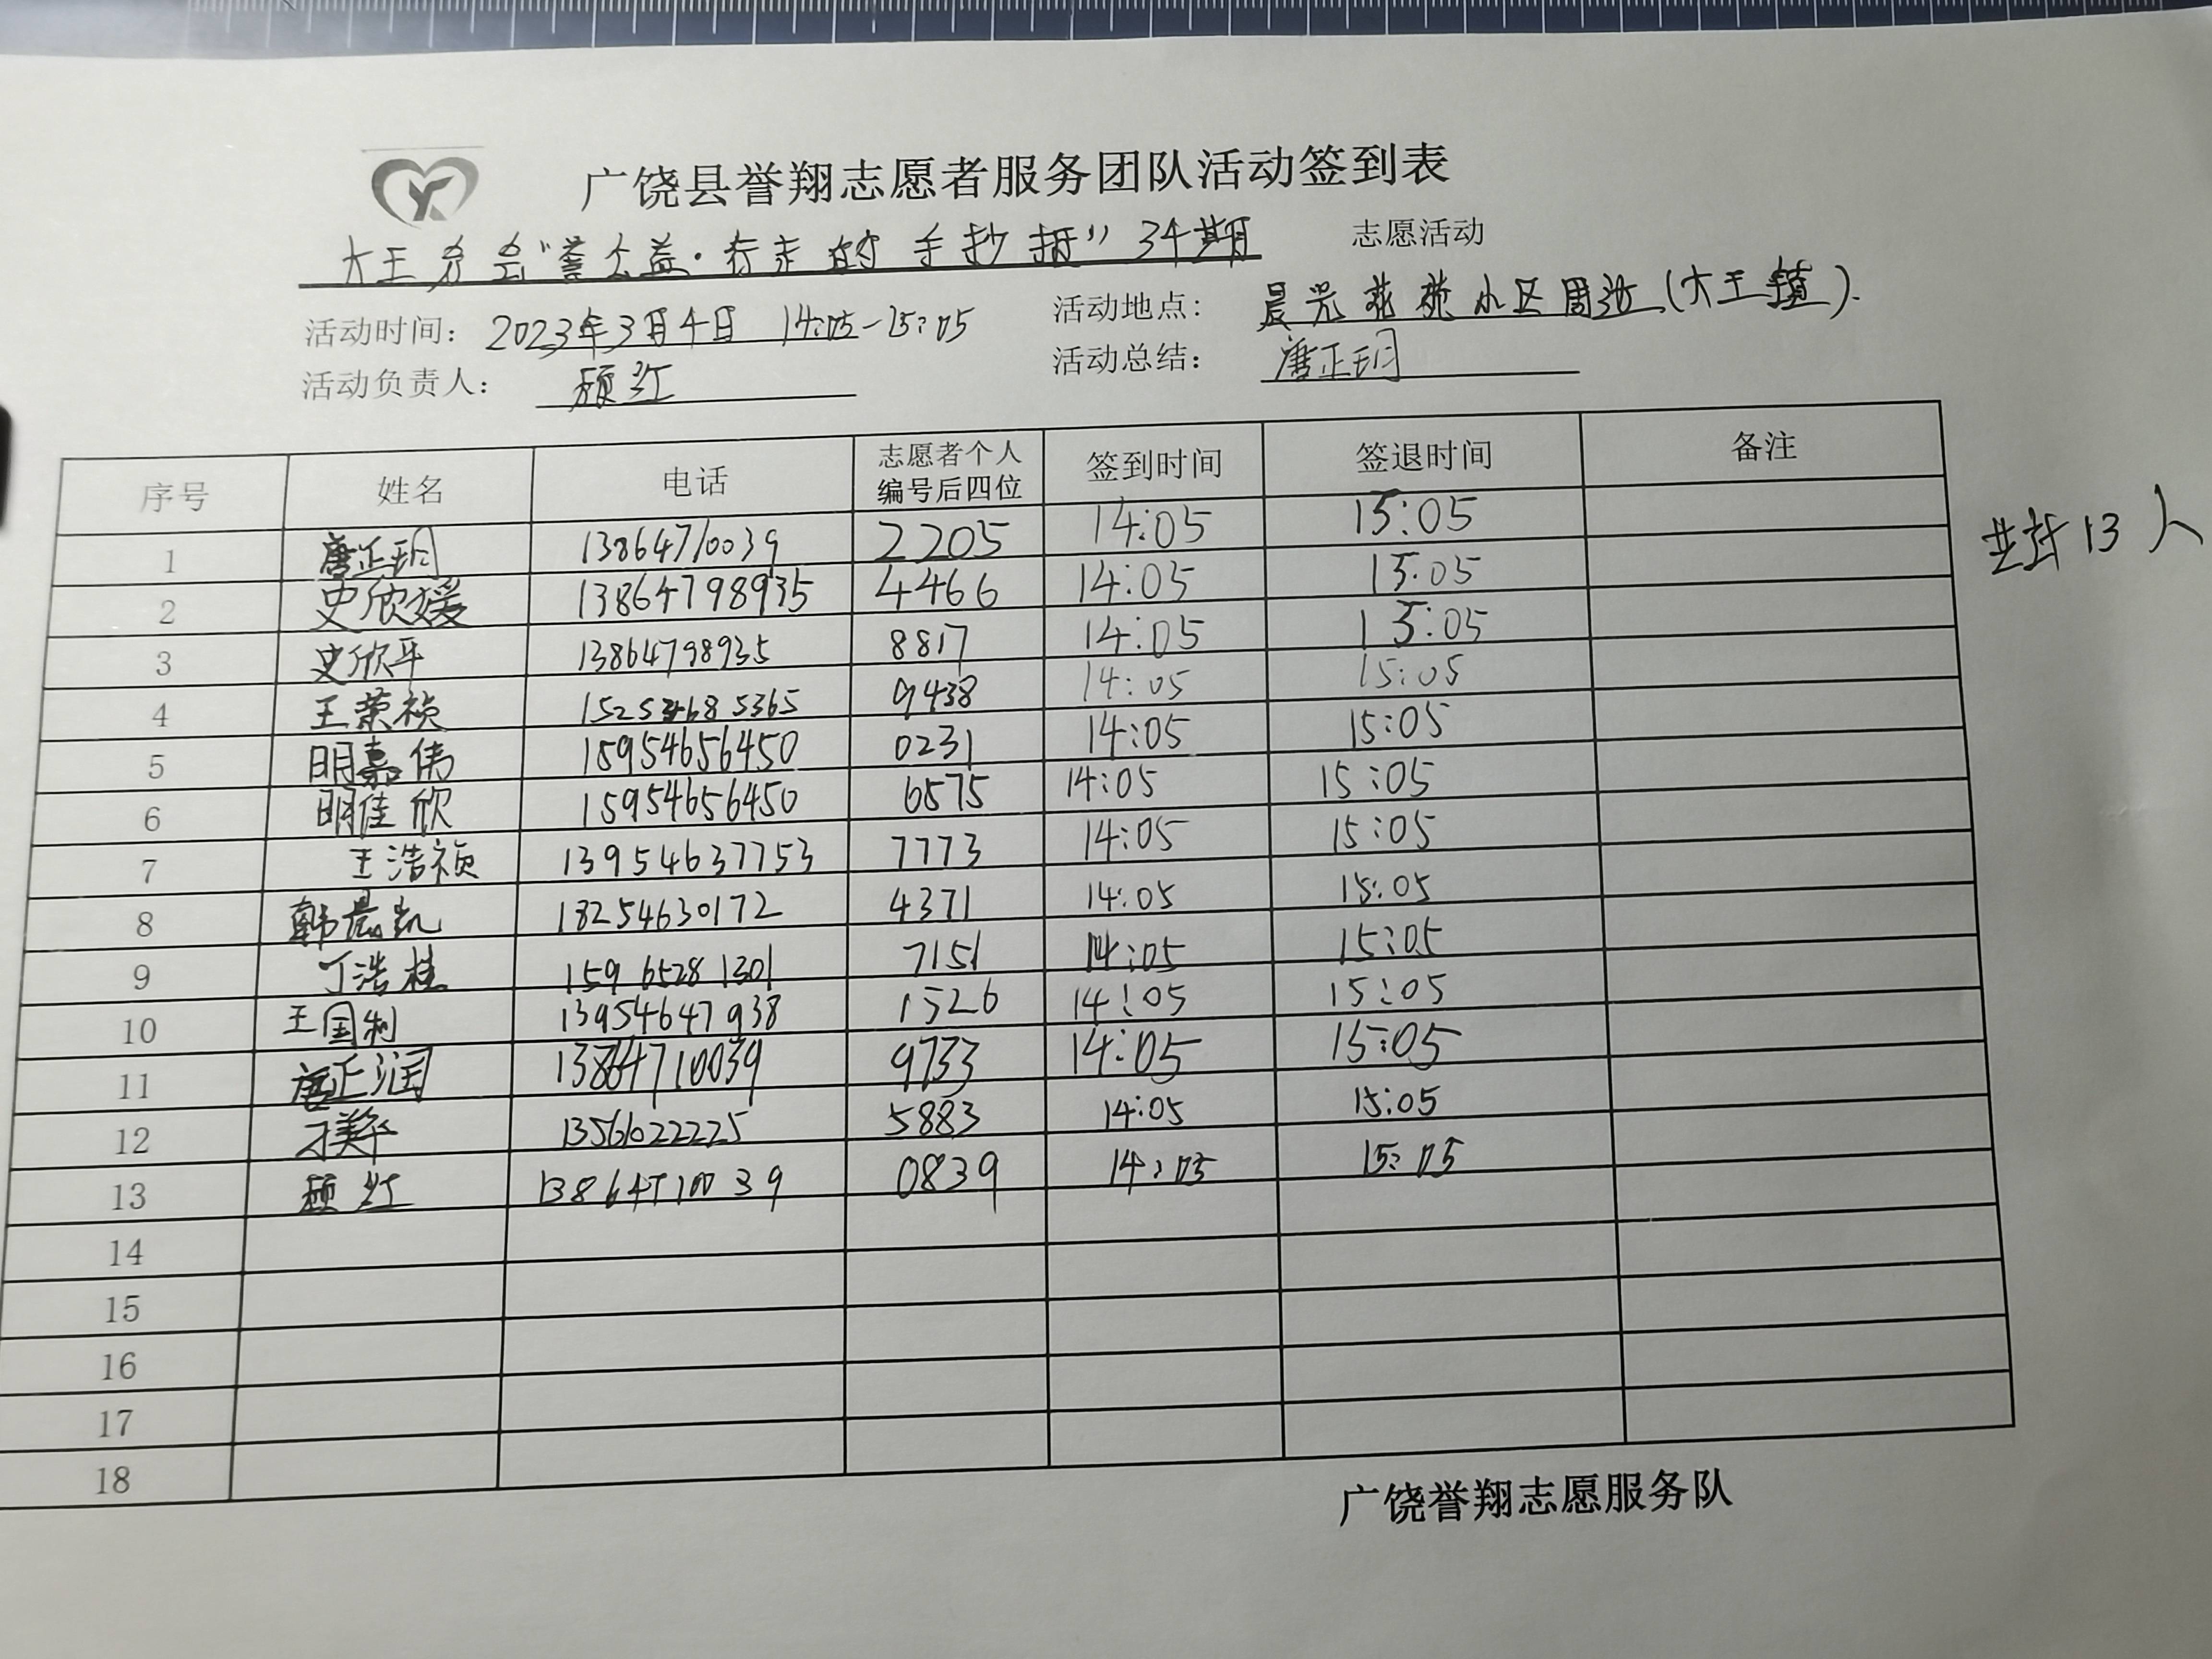 广饶县誉翔志愿者服务团队活动签到表
大王分会"善公益·行走的手抄报"34期 志愿活动
活动时间: 2023年3月4日 14:05-15:05 活动地点: 晨光花苑小区周边(大王镇).
活动负责人: 颜红 活动总结: 唐正玥
序号 姓名 电话 志愿者个人编号后四位 签到时间 签退时间 备注
共计13人
1 唐正玥 13864710039 2205 14:05 15:05
2 史欣媛 13864798935 4466 14:05 15:05
3 史欣平 13864798935 8817 14:05 15:05
4 王荣祯 9438 14:05 15:05
5 明嘉伟 15954656450 0231 14:05 15:05
6 明佳欣 15954656450 6575 14:05 15:05
7 王浩祯 13954637753 7773 14:05 15:05
8 韩晨凯 18254630172 4371 14:05 15:05
9 丁浩桂 159 6528 1301 7151 14:05 15:05
10 王国利 13954647938 1526 14:05 15:05
11 唐正润 13864710039 9733 14:05 15:05
12 13561022225 5883 14:05 15:05
13 颜红 13864710039 0839 14:05 15:05
14
15
16
17
18
广饶誉翔志愿服务队